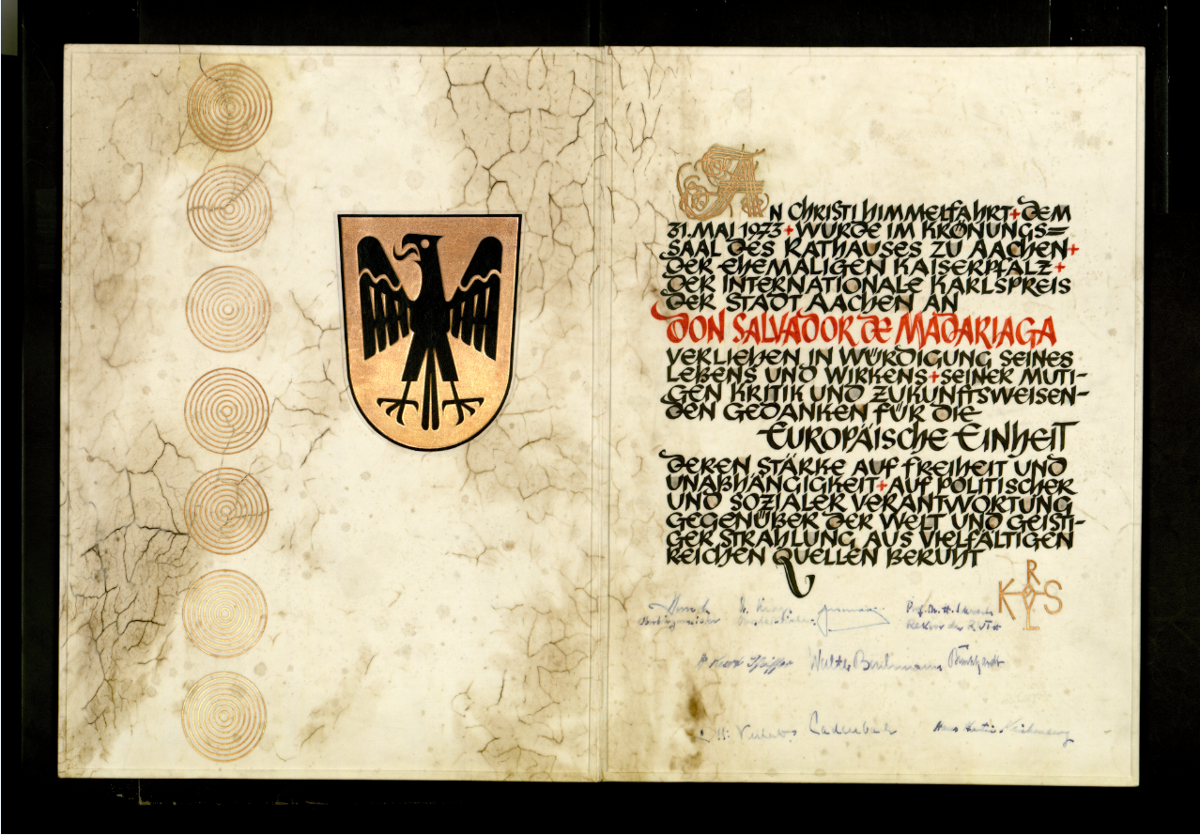 AN CHRISTI HIMMELFAHRT + DEM
31. MAI 1973 + WURDE IM KRÖNUNGS=
SAAL DES RATHAUSES ZU AACHEN +
DER EHEMALIGEN KAISERPFALZ +
DER INTERNATIONALE KARLSPREIS
DER STADT AACHEN AN
DON SALVADOR DE MADARIAGA
VERLIEHEN IN WÜRDIGUNG SEINES
LEBENS UND WIRKENS + SEINER MUTI-
GEN KRITIK UND ZUKUNFTSWEISEN-
DEN GEDANKEN FÜR DIE
EUROPÄISCHE EINHEIT
DEREN STÄRKE AUF FREIHEIT UND
UNABHÄNGIGKEIT + AUF POLITISCHER
UND SOZIALER VERANTWORTUNG
GEGENÜBER DER WELT UND GEISTI-
GER STRAHLUNG AUS VIELFÄLTIGEN
REICHEN QUELLEN BERUHT
K R L S
Oberbürgermeister
Rektor der
Pfeiffer
Cadenbach
Hans